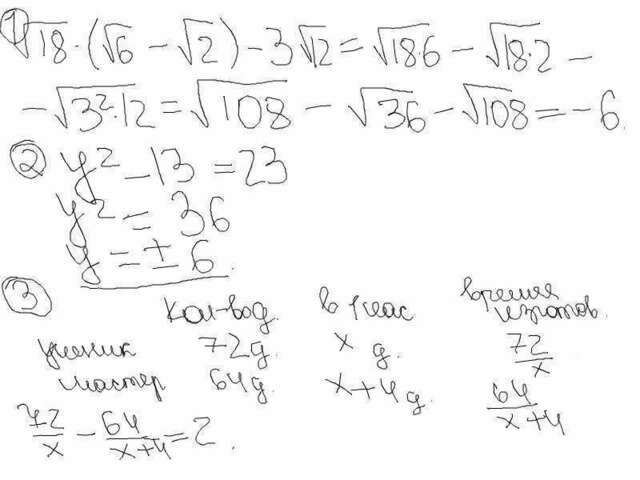 1) √18·(√6 − √2) − 3√12 = √18·6 − √18·2 −
− √3²·12 = √108 − √36 − √108 = −6.
2) y² − 13 = 23
y² = 36
y = ± 6.
3) Кол-во д. в 1 час время изготов.
ученик 72 д. x д. 72/x
мастер 64 д. x+4 д. 64/(x+4)
72/x − 64/(x+4) = 2.